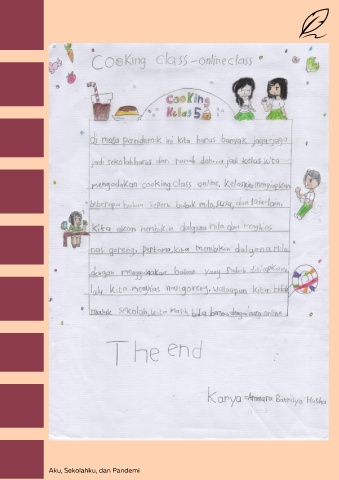 Cooking class - online class
Cooking
Kelas 5
Di masa pandemik ini kita harus banyak jaga-jaga
jadi sekolah harus dari rumah dan jadi kelas kita
mengadakan cooking class online, Kelas kita menyiapkan
beberapa bahan seperti bubuk milo, susu, dan lain-lain.
Kita akan membuat dalgona milo dan menghias
nasi goreng, pertama kita membuat dalgona milo
dengan menggunakan bahan yang sudah disiapkan,
lalu kita menghias nasi goreng, walaupun kita tidak
masuk sekolah, kita masih bisa online
The end
Karya
Aku, Sekolahku, dan Pandemi